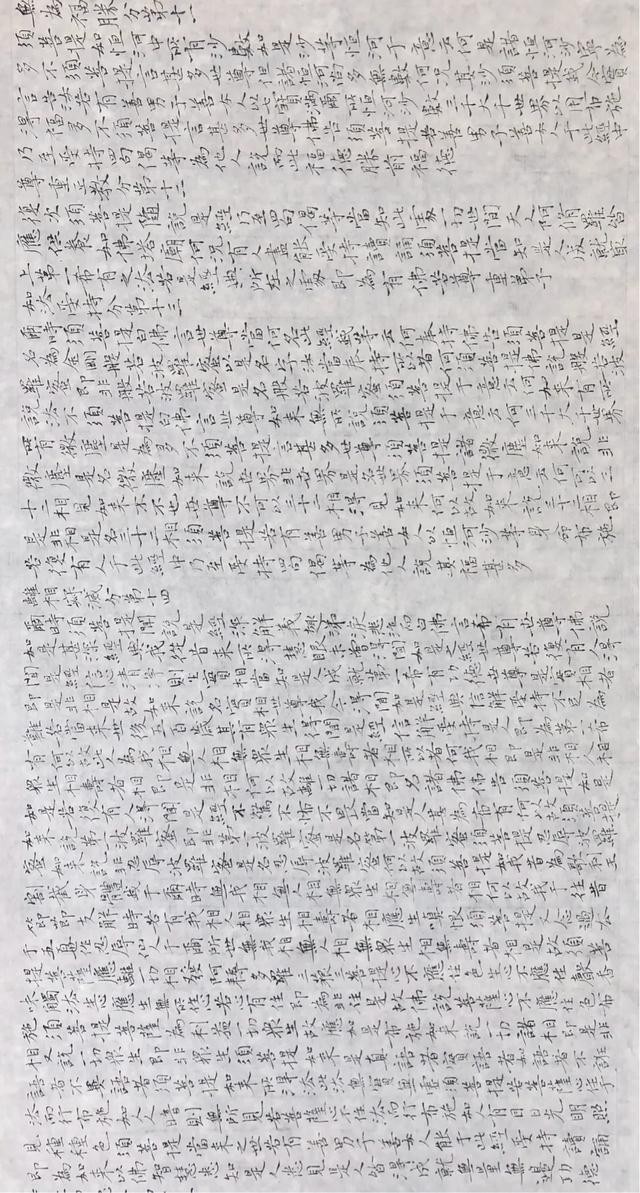 無為福勝分第十一
須菩提如恒河中所有沙數如是沙等恒河于意云何是諸恒河沙寧為
多不須菩提言甚多世尊但諸恒河尚多無數何况其沙須菩提我今實
言告汝若有善男子善女人以七寶滿爾所恒河沙數三千大千世界以用布施
得福多不須菩提言甚多世尊佛告須菩提若善男子善女人于此經中
乃至受持四句偈等為他人說而此福德勝前福德
尊重正教分第十二
復次須菩提隨說是經乃至四句偈等當知此處一切世間天人阿脩羅皆
應供養如佛塔廟何况有人盡能受持讀誦須菩提當知是人成就最
上第一希有之法若是經典所在之處即為有佛若尊重弟子
如法受持分第十三
爾時須菩提白佛言世尊當何名此經我等云何奉持佛告須菩提是經
名為金剛般若波羅蜜以是名字汝當奉持所以者何須菩提佛說般若波
羅蜜即非般若波羅蜜是名般若波羅蜜須菩提于意云何如來有所
說法不須菩提白佛言世尊如來無所說須菩提于意云何三千大千世界
所有微塵是為多不須菩提言甚多世尊須菩提諸微塵如來說非
微塵是名微塵如來說世界非世界是名世界須菩提于意云何可以三
十二相見如來不不也世尊不可以三十二相得見如來何以故如來說三十二相即
是非相是名三十二相須菩提若有善男子善女人以恒河沙等身命布施
若復有人于此經中乃至受持四句偈等為他人說其福甚多
離相寂滅分第十四
爾時須菩提聞說是經深解義趣涕淚悲泣而白佛言希有世尊佛說
如是甚深經典我從昔來所得慧眼未曾得聞如是之經世尊若復有人得
聞是經信心清淨則生實相當知是人成就第一希有功德世尊是實相者
即是非相是故如來說名實相世尊我今得聞如是經典信解受持不足為
難若當來世後五百歲其有眾生得聞是經信解受持是人即為第一希
有何以故此人無我相無人相無眾生相無壽者相所以者何我相即是非相人相
眾生相壽者相即是非相何以故離一切諸相即名諸佛佛告須菩提如是
如是若復有人得聞是經不驚不怖不畏當知是人甚為希有何以故須菩提
如來說第一波羅蜜即非第一波羅蜜是名第一波羅蜜須菩提忍辱波羅
蜜如來說非忍辱波羅蜜是名忍辱波羅蜜何以故須菩提如我昔為歌利王
割截身體我于爾時無我相無人相無眾生相無壽者相何以故我于往昔
節節支解時若有我相人相眾生相壽者相應生嗔恨須菩提又念過去
于五百世作忍辱仙人于爾所世無我相無人相無眾生相無壽者相是故須菩
提菩薩應離一切相發阿耨多羅三藐三菩提心不應住色生心不應住聲香
味觸法生心應生無所住心若心有住即為非住是故佛說菩薩心不應住色布
施須菩提菩薩為利益一切眾生故應如是布施如來說一切諸相即是非
相又說一切眾生即非眾生須菩提如來是真語者實語者如語者不誑
語者不異語者須菩提如來所得法此法無實無虛須菩提若菩薩心住于
法而行布施如人入暗則無所見若菩薩心不住法而行布施如人有目日光明照
見種種色須菩提當來之世若有善男子善女人能于此經受持讀誦
即為如來以佛智慧悉知是人悉見是人皆得成就無量無邊功德